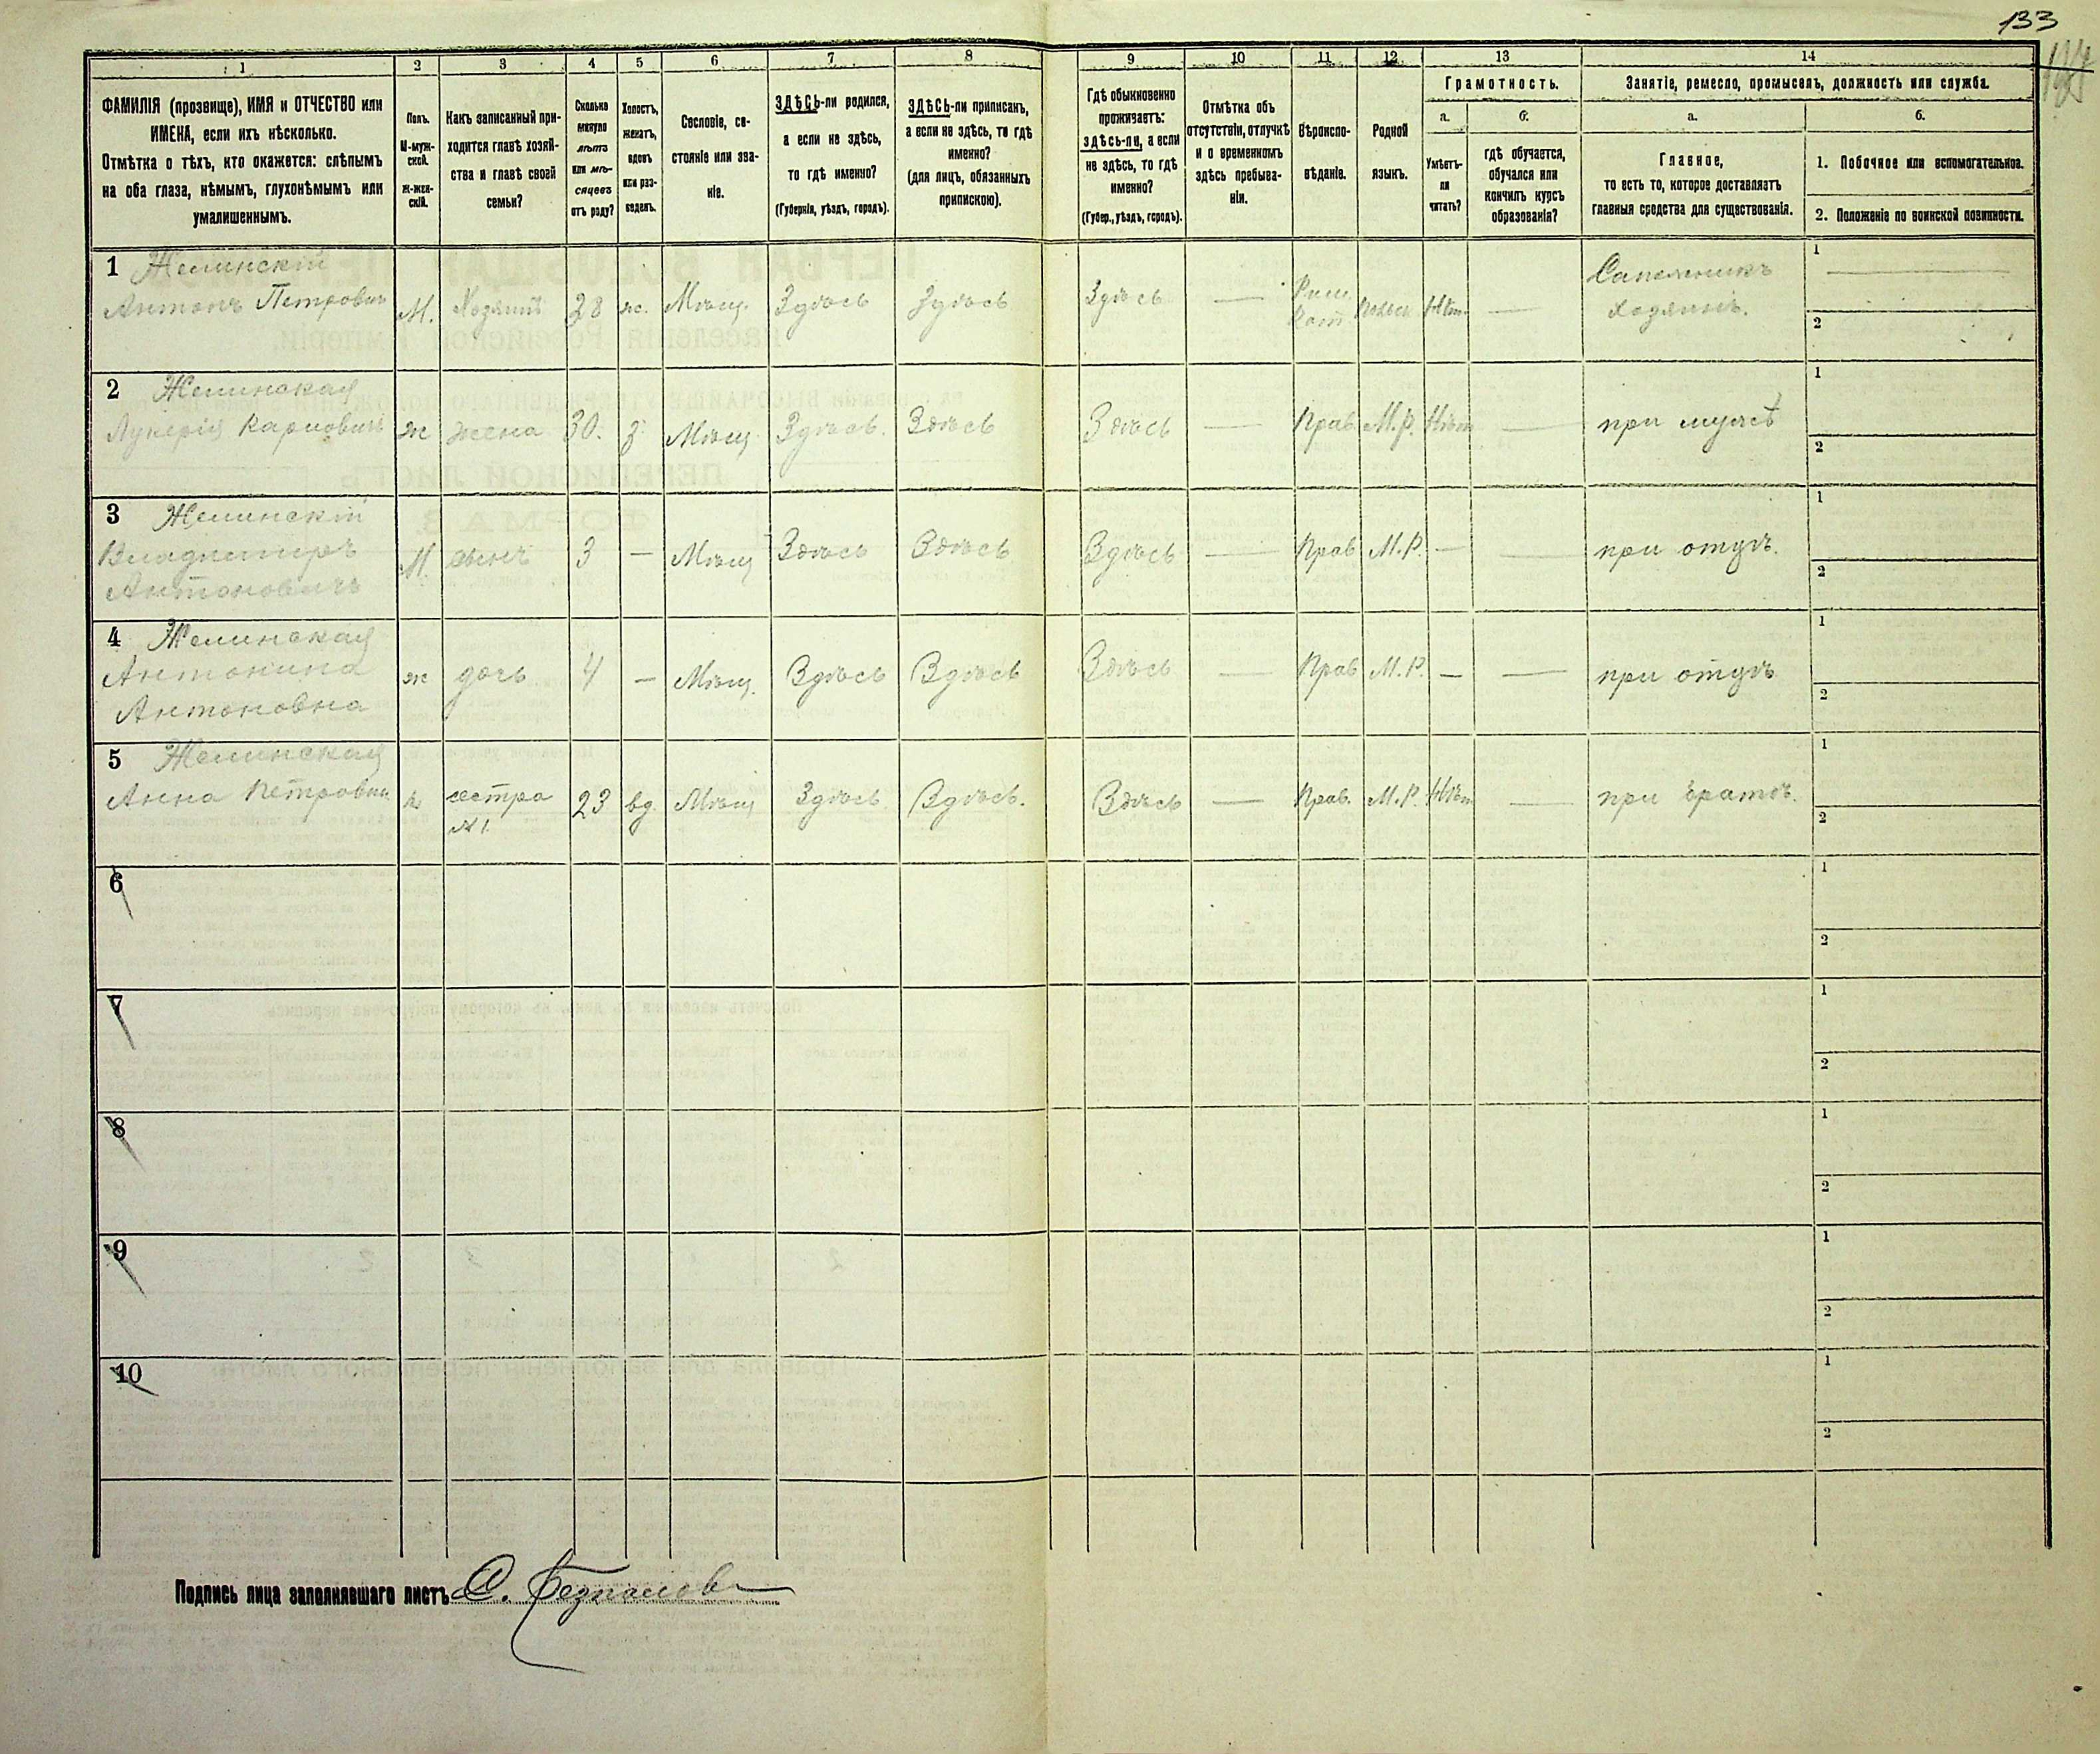 133
1 2 3 4 5 6 7 8 9 10 11 12 13 14
ФАМИЛІЯ (прозвище), ИМЯ и ОТЧЕСТВО или
ИМЕНА, если ихъ нѣсколько.
Отмѣтка о тѣхъ, кто окажется: слѣпымъ
на оба глаза, нѣмымъ, глухонѣмымъ или
умалишеннымъ.
Полъ.
М-муж-
ской.
Ж-жен-
скій.
Какъ записанный при-
ходится главѣ хозяй-
ства и главѣ своей
семьи?
Сколько
минуло
лѣтъ
или мѣ-
сяцевъ
отъ роду?
Холостъ,
женатъ,
вдовъ
или раз-
веденъ.
Сословіе, со-
стояніе или зва-
ніе.
ЗДѢСЬ-ли родился,
а если не здѣсь,
то гдѣ именно?
(Губернія, уѣздъ, городъ).
ЗДѢСЬ-ли приписанъ,
а если не здѣсь, то гдѣ
именно?
(для лицъ, обязанныхъ
припискою).
Гдѣ обыкновенно
проживаетъ:
здѣсь-ли, а если
не здѣсь, то гдѣ
именно?
(Губер., уѣздъ, городъ).
Отмѣтка объ
отсутствіи, отлучкѣ
и о временномъ
здѣсь пребыва-
ніи.
Вѣроиспо-
вѣданіе.
Родной
языкъ.
Грамотность.
а. б.
Умѣетъ-
ли
читать?
гдѣ обучается,
обучался или
кончилъ курсъ
образованія?
Занятіе, ремесло, промыселъ, должность или служба.
а. б.
Главное,
то есть то, которое доставляетъ
главныя средства для существованія.
1. Побочное или вспомогательное.
2. Положеніе по воинской повинности.
1 Желинскій
Антонъ Петровичъ М. Хозяинъ 28 ж. Мѣщ. Здѣсь Здѣсь Здѣсь — Рим. Кат. Польск. Нѣт — Сапожникъ хозяинъ. 1 — 2
2 Желинская
Лукерія Карповичъ ж жена 30. з. Мѣщ. Здѣсь. Здѣсь Здѣсь — Прав. М.р. Нѣт — при мужѣ 1 2
3 Желинскій
Владиміръ
Антоновичъ М. сынъ 3 — Мѣщ Здѣсь Здѣсь Здѣсь — Прав М.Р. — — при отцѣ. 1 2
4 Желинская
Антонина
Антоновна ж дочь 4 — Мѣщ. Здѣсь Здѣсь Здѣсь — Прав М.Р. — — при отцѣ 1 2
5 Желинская
Анна Петровна ж сестра № 1. 23 вд. Мѣщ Здѣсь Здѣсь. Здѣсь — Прав. М.Р. Нѣт — при братѣ. 1 2
6 1 2
7 1 2
8 1 2
9 1 2
10 1 2
Подпись лица заполнявшаго листъ